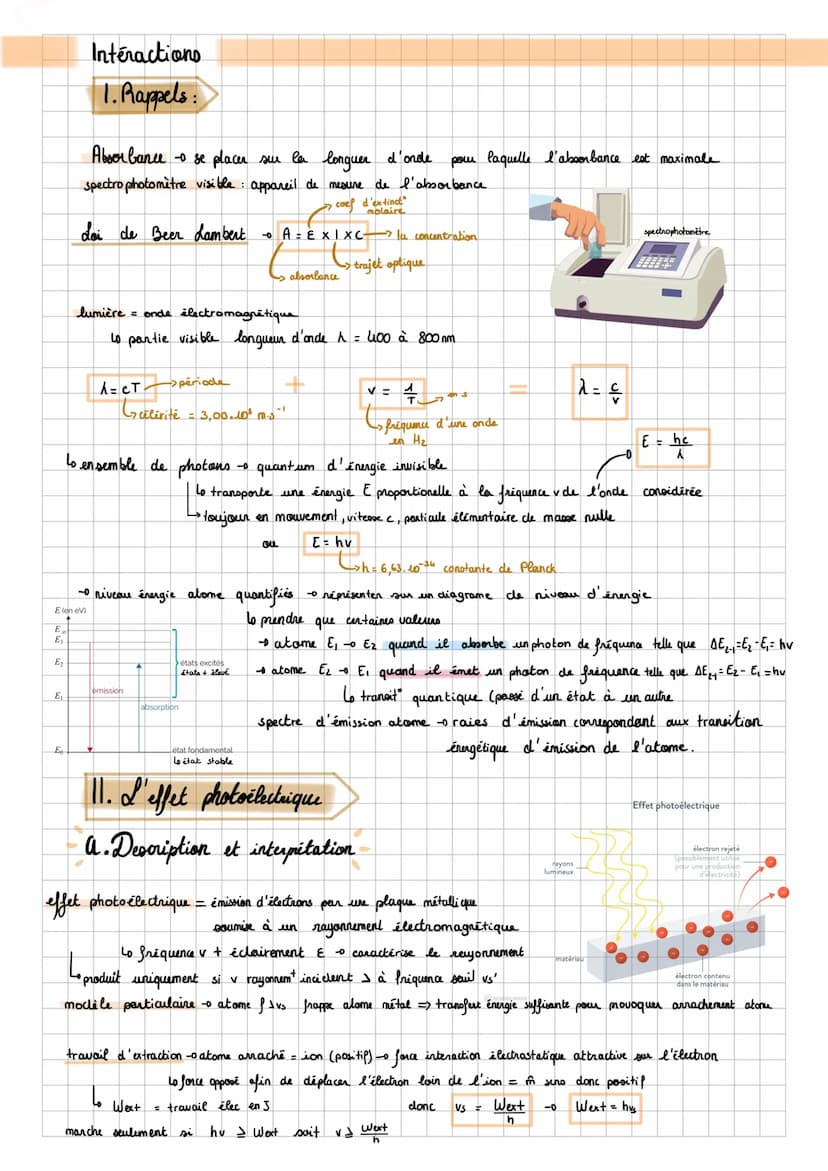 Intéractions
1. Rappels :
Absorbance → se placer sur la longuer d'onde pour laquelle l'absorbance est maximale
spectrophotomètre visible : appareil de mesure de l'absorbance
coef d'extinct°
molaire
Loi de Beer Lambert → A = ε x l x C → la concentration
trajet optique
absorbance
spectrophotomètre
lumière = onde électromagnétique
↳ partie visible longueur d'onde λ = 400 à 800 nm
λ = cT → période
+
v = 1/T → en s
=
λ = c/v
↳ célérité = 3,00.10⁸ m.s⁻¹
↳ fréquence d'une onde
en Hz
E = hc/λ
↳ ensemble de photons → quantum d'énergie invisible
↳ transporte une énergie E proportionelle à la fréquence v de l'onde considirée
↳ toujour en mouvement, vitesse c, particule élémentaire de masse nulle
ou E = hv
↳ h = 6,63.10⁻³⁴ constante de Planck
→ niveau énergie atome quantifiés → réprésenter sur un diagrame de niveau d'énergie
↳ prendre que certaines valeurs
→ atome E₁ → E₂ quand il absorbe un photon de fréquence telle que ΔE₂₋₁ = E₂ - E₁ = hv
→ atome E₂ → E₁ quand il émet un photon de fréquence telle que ΔE₂₋₁ = E₂ - E₁ = hv
↳ transit° quantique (passé d'un état à un autre
spectre d'émission atome → raies d'émission correspondent aux transition
énergétique d'émission de l'atome.
E (en eV)
E∞
E₃
E₂
E₁
E₀
émission
absorption
états excités
états + élevé
état fondamental
↳ état stable
II. L'effet photoélectrique
a. Description et interpétation
Effet photoélectrique
rayons
lumineux
électron rejeté
(possiblement utilisé
pour une production
d'électricité)
matériau
électron contenu
dans le matériau
effet photoélectrique = émission d'électrons par une plaque métallique
soumise à un rayonnement électromagnétique
↳ fréquence v + éclairement E → caractérise le rayonnement
↳ produit uniquement si v rayonnemt incident > à fréquence seuil vs'
modèle particulaire → atome f > vs frappe atome métal => transfert énergie suffisante pour provoquer arrachement atome
travail d'extraction → atome arraché = ion (positif) → force interaction électrostatique attractive sur l'électron
↳ force opposé afin de déplacer l'électron loin de l'ion = m̂ sens donc positif
↳ Wext = travail élec en J donc vs = Wext/h → Wext = hvs
marche seulement si hv ≥ Wext soit v ≥ Wext/h